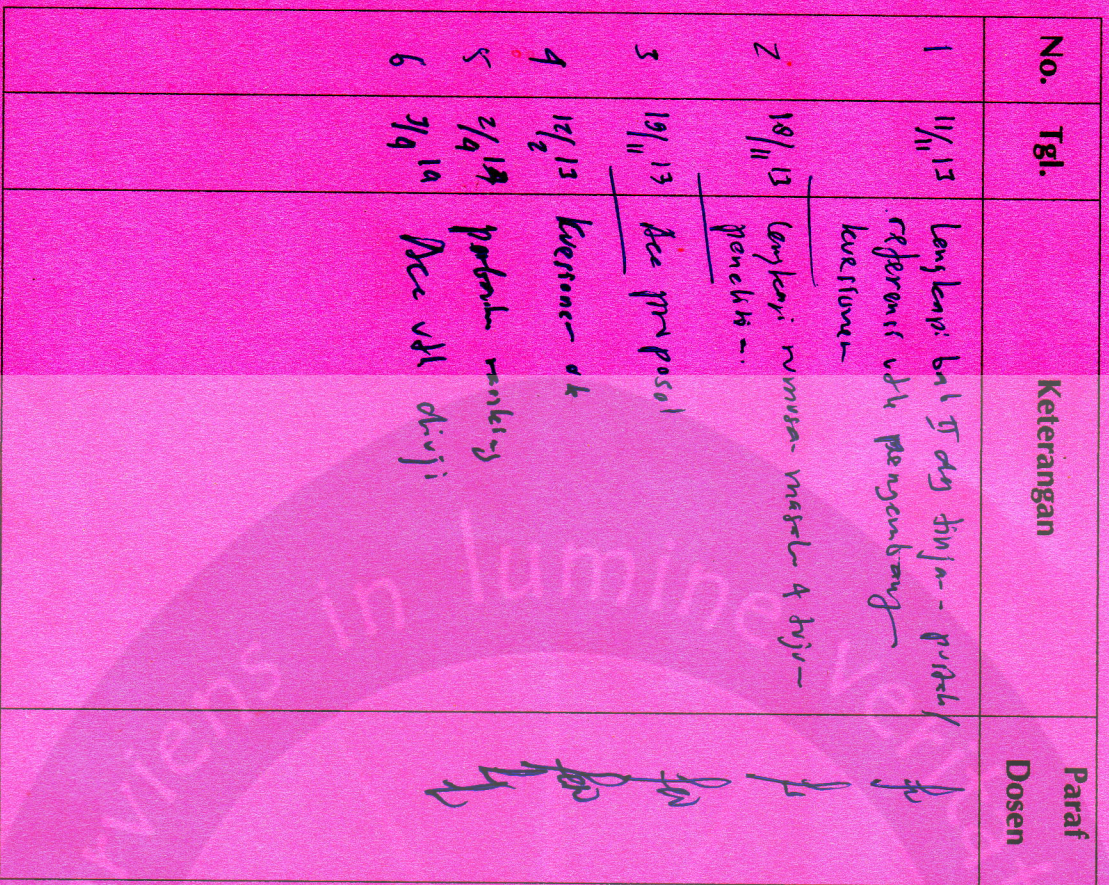 No. Tgl. Keterangan Paraf Dosen
1 11/11 13 Lengkapi bab II dg tinjauan pustaka/
referensi utk pengembang
kuesioner
2 18/11 13 Lengkapi rumusan masalah & tujuan
penelitian.
3 19/11 13 Acc proposal
4 12/2 13 kuesioner ok
5 2/4 14 ranking
6 3/4 14 Acc utk diuji
viens in lumine veri